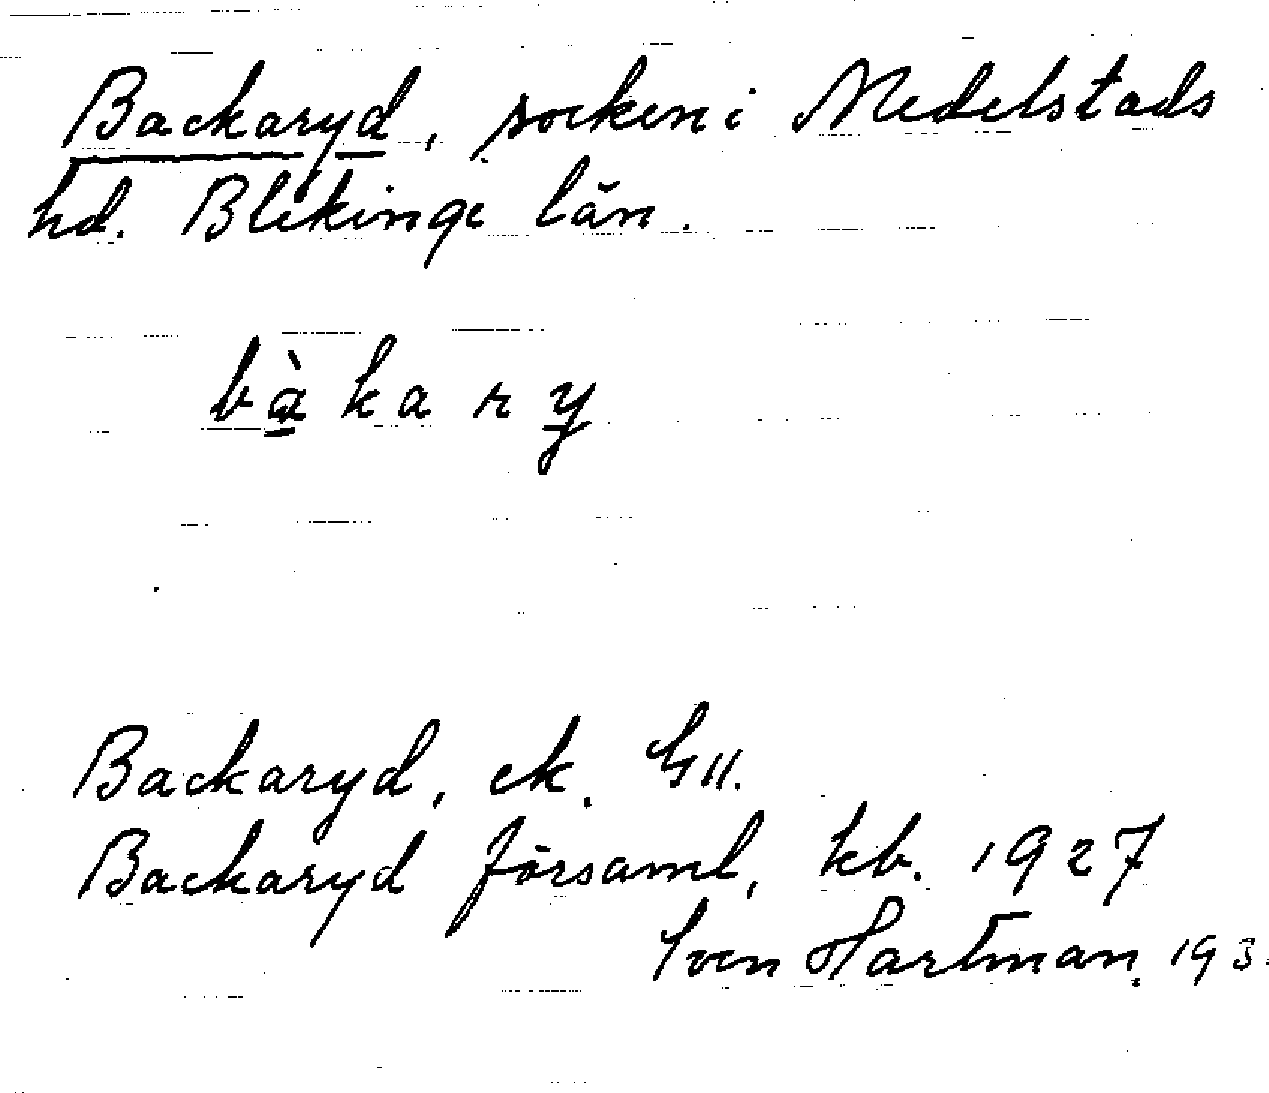 Backaryd, socken i Medelstads
hd. Blekinge län.
bàkary
Backaryd, ek. G11.
Backaryd församl, kb. 1927
Sven Hartman. 193